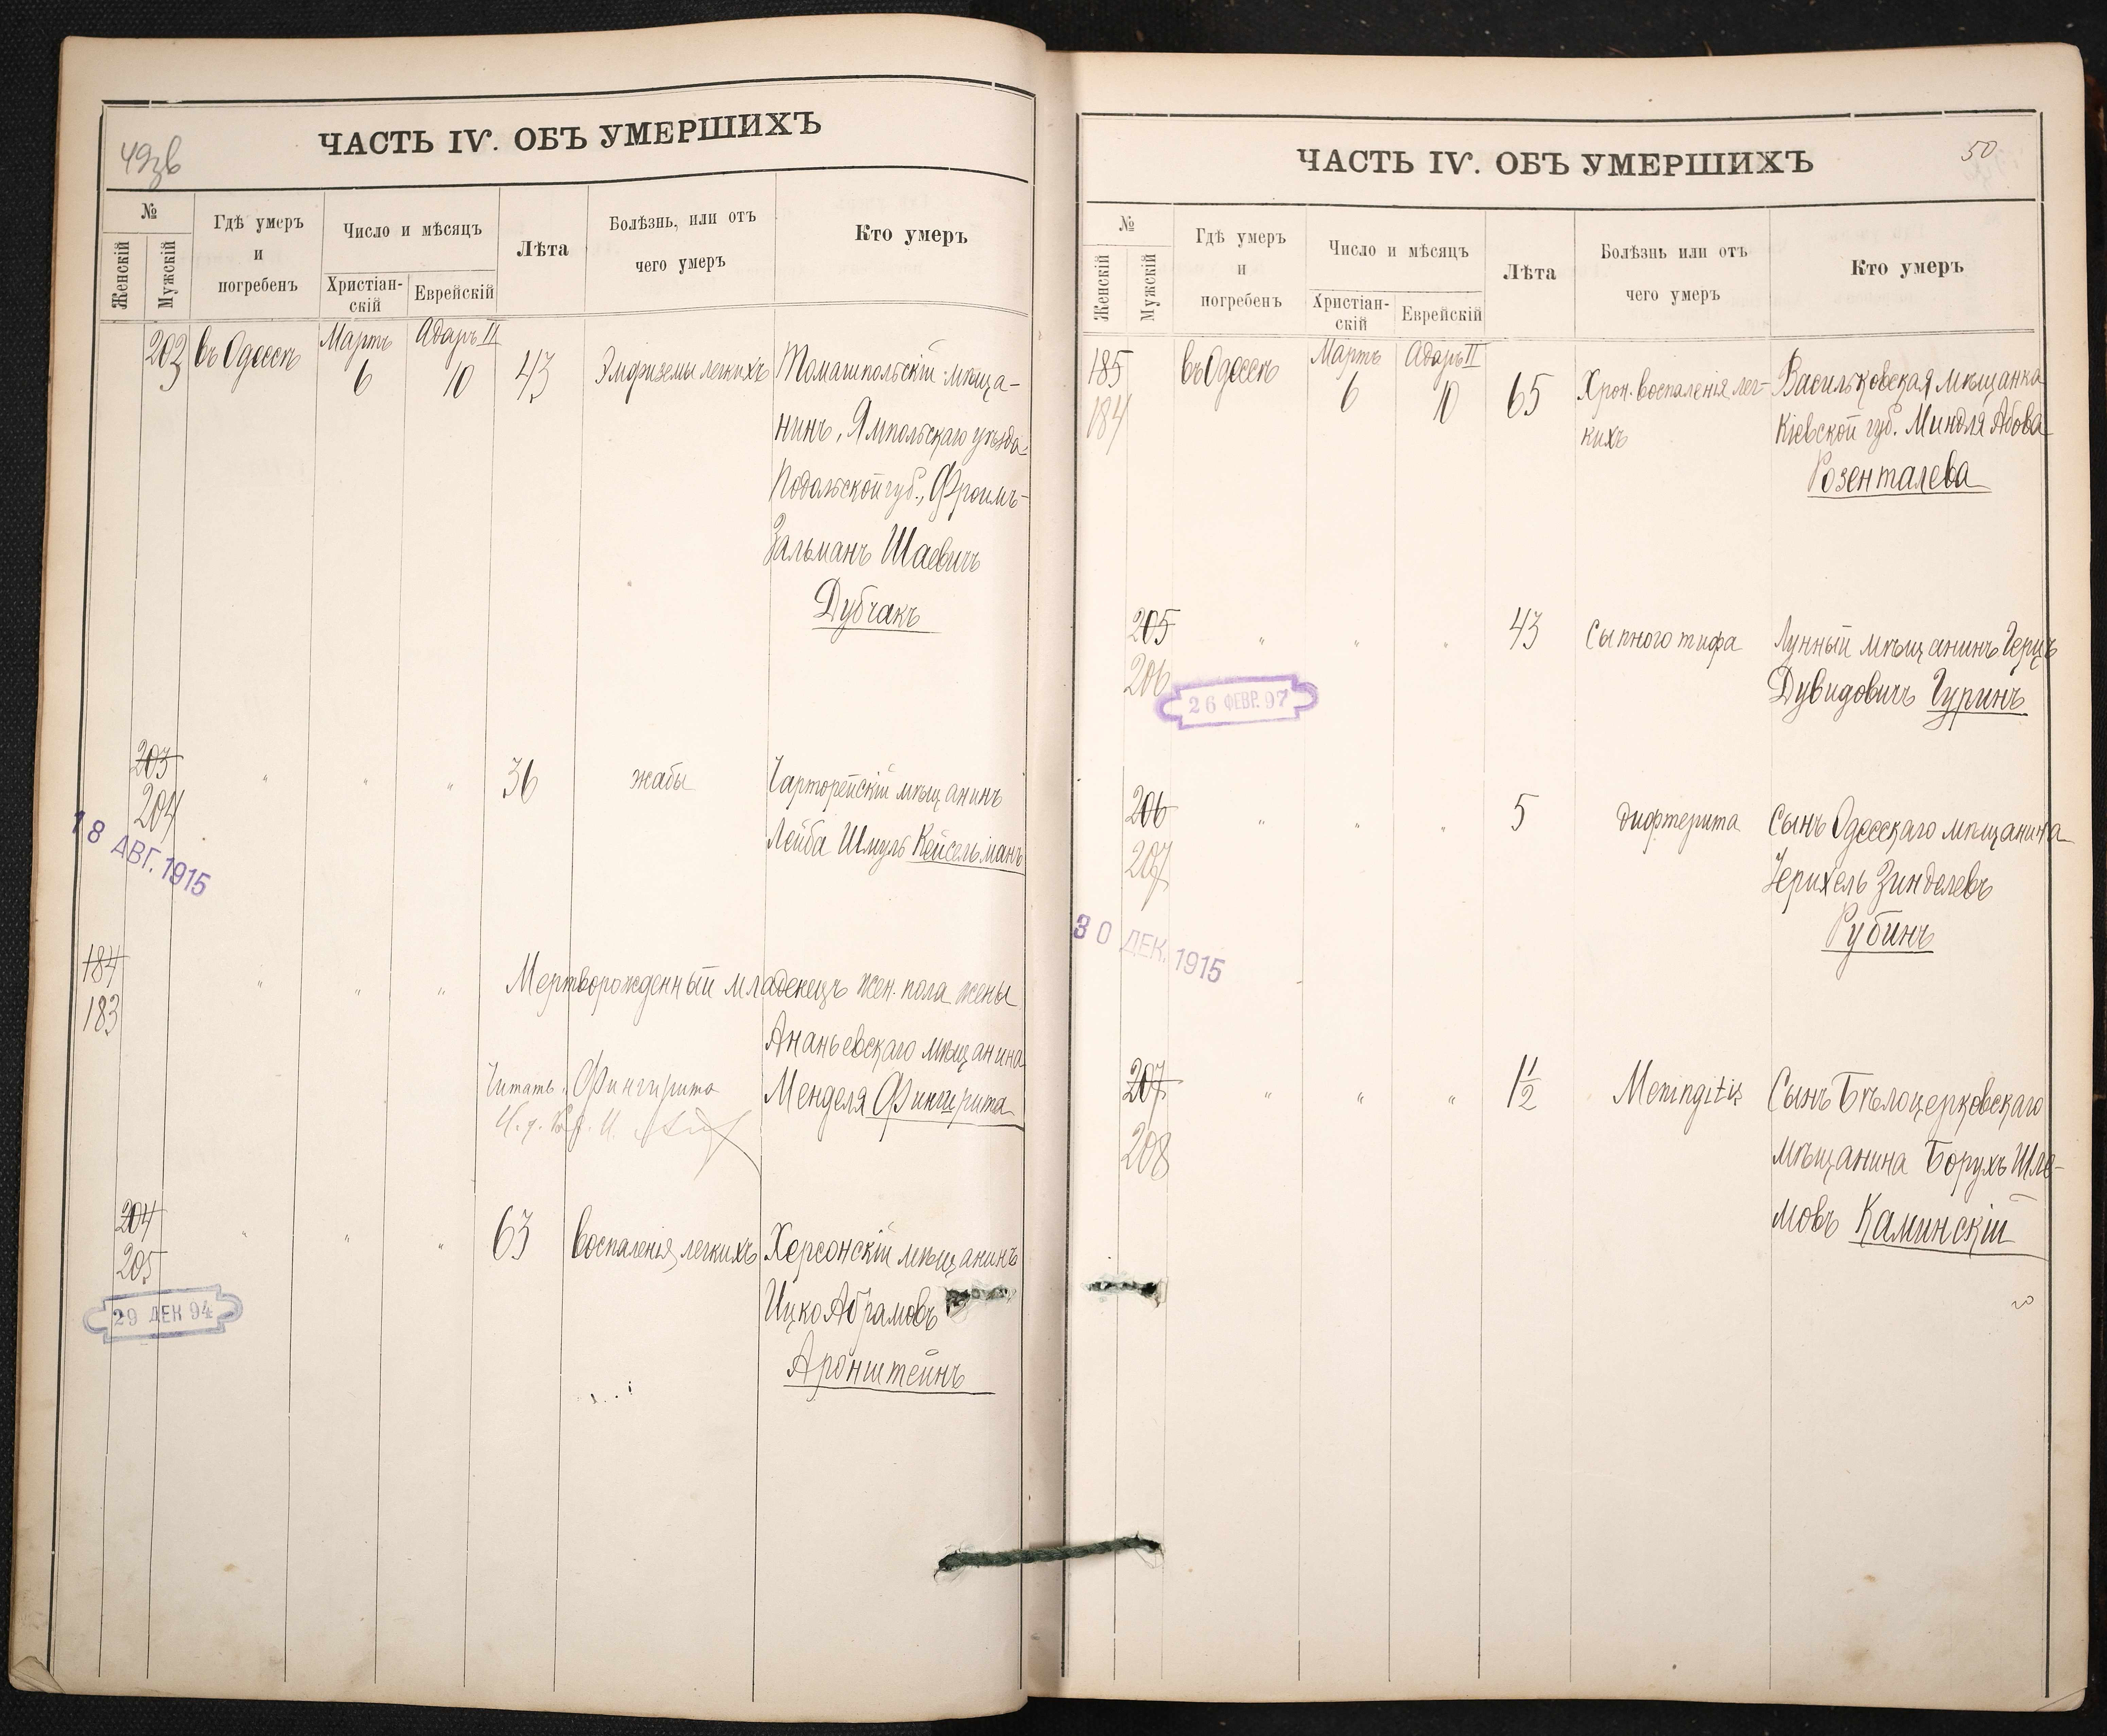 49зв
ЧАСТЬ IV. ОБЪ УМЕРШИХЪ
№
Женскій
Мужскій
Гдѣ умеръ
и
погребенъ
Число и мѣсяцъ
Христіан-
скій
Еврейскій
Лѣта
Болѣзнь, или отъ
чего умеръ
Кто умеръ
203 въ Одессѣ Мартъ 6 Адаръ II 10 43 Эмфиземы легкихъ Томашпольскій мѣща-
нинъ, Ямпольскаго уѣзда
Подольской губ., Фроимъ-
Зальманъ Шаевичъ
Дубчакъ
203 " " " 36 жабы Чарторейскій мѣщанинъ
204 Лейба Шмулъ Кейсельманъ
18 АВГ. 1915
184 " " " Мертворожденный младенецъ жен. пола жены
183
Ананьевскаго мѣщанина
Менделя Фингирита
Читать: Фингирита
204 " " " 63 воспаленія легкихъ Херсонскій мѣщанинъ
205 Ицко Абрамовъ
29 ДЕК 94
Аронштейнъ
50
ЧАСТЬ IV. ОБЪ УМЕРШИХЪ
№
Женскій
Мужскій
Гдѣ умеръ
и
погребенъ
Число и мѣсяцъ
Христіан-
скій
Еврейскій
Лѣта
Болѣзнь или отъ
чего умеръ
Кто умеръ
185 въ Одессѣ Мартъ 6 Адаръ II 10 65 Хрон. воспаленія лег- Васильковская мѣщанка
184 кихъ Кіевской губ. Миндля Абова
Розенталева
205 " " " 43 Сыпного тифа Лунный мѣщанинъ Герцъ
206 Дувидовичъ Гуринъ
26 ФЕВР. 97
206 " " " 5 дифтерита Сынъ Одесскаго мѣщанина
207 Іерихель Зинделевъ
Рубинъ
30 ДЕК. 1915
207 " " " 1 1/2 Meningitis Сынъ Бѣлоцерковскаго
208 мѣщанина Борухъ Шле-
мовъ Каминскій